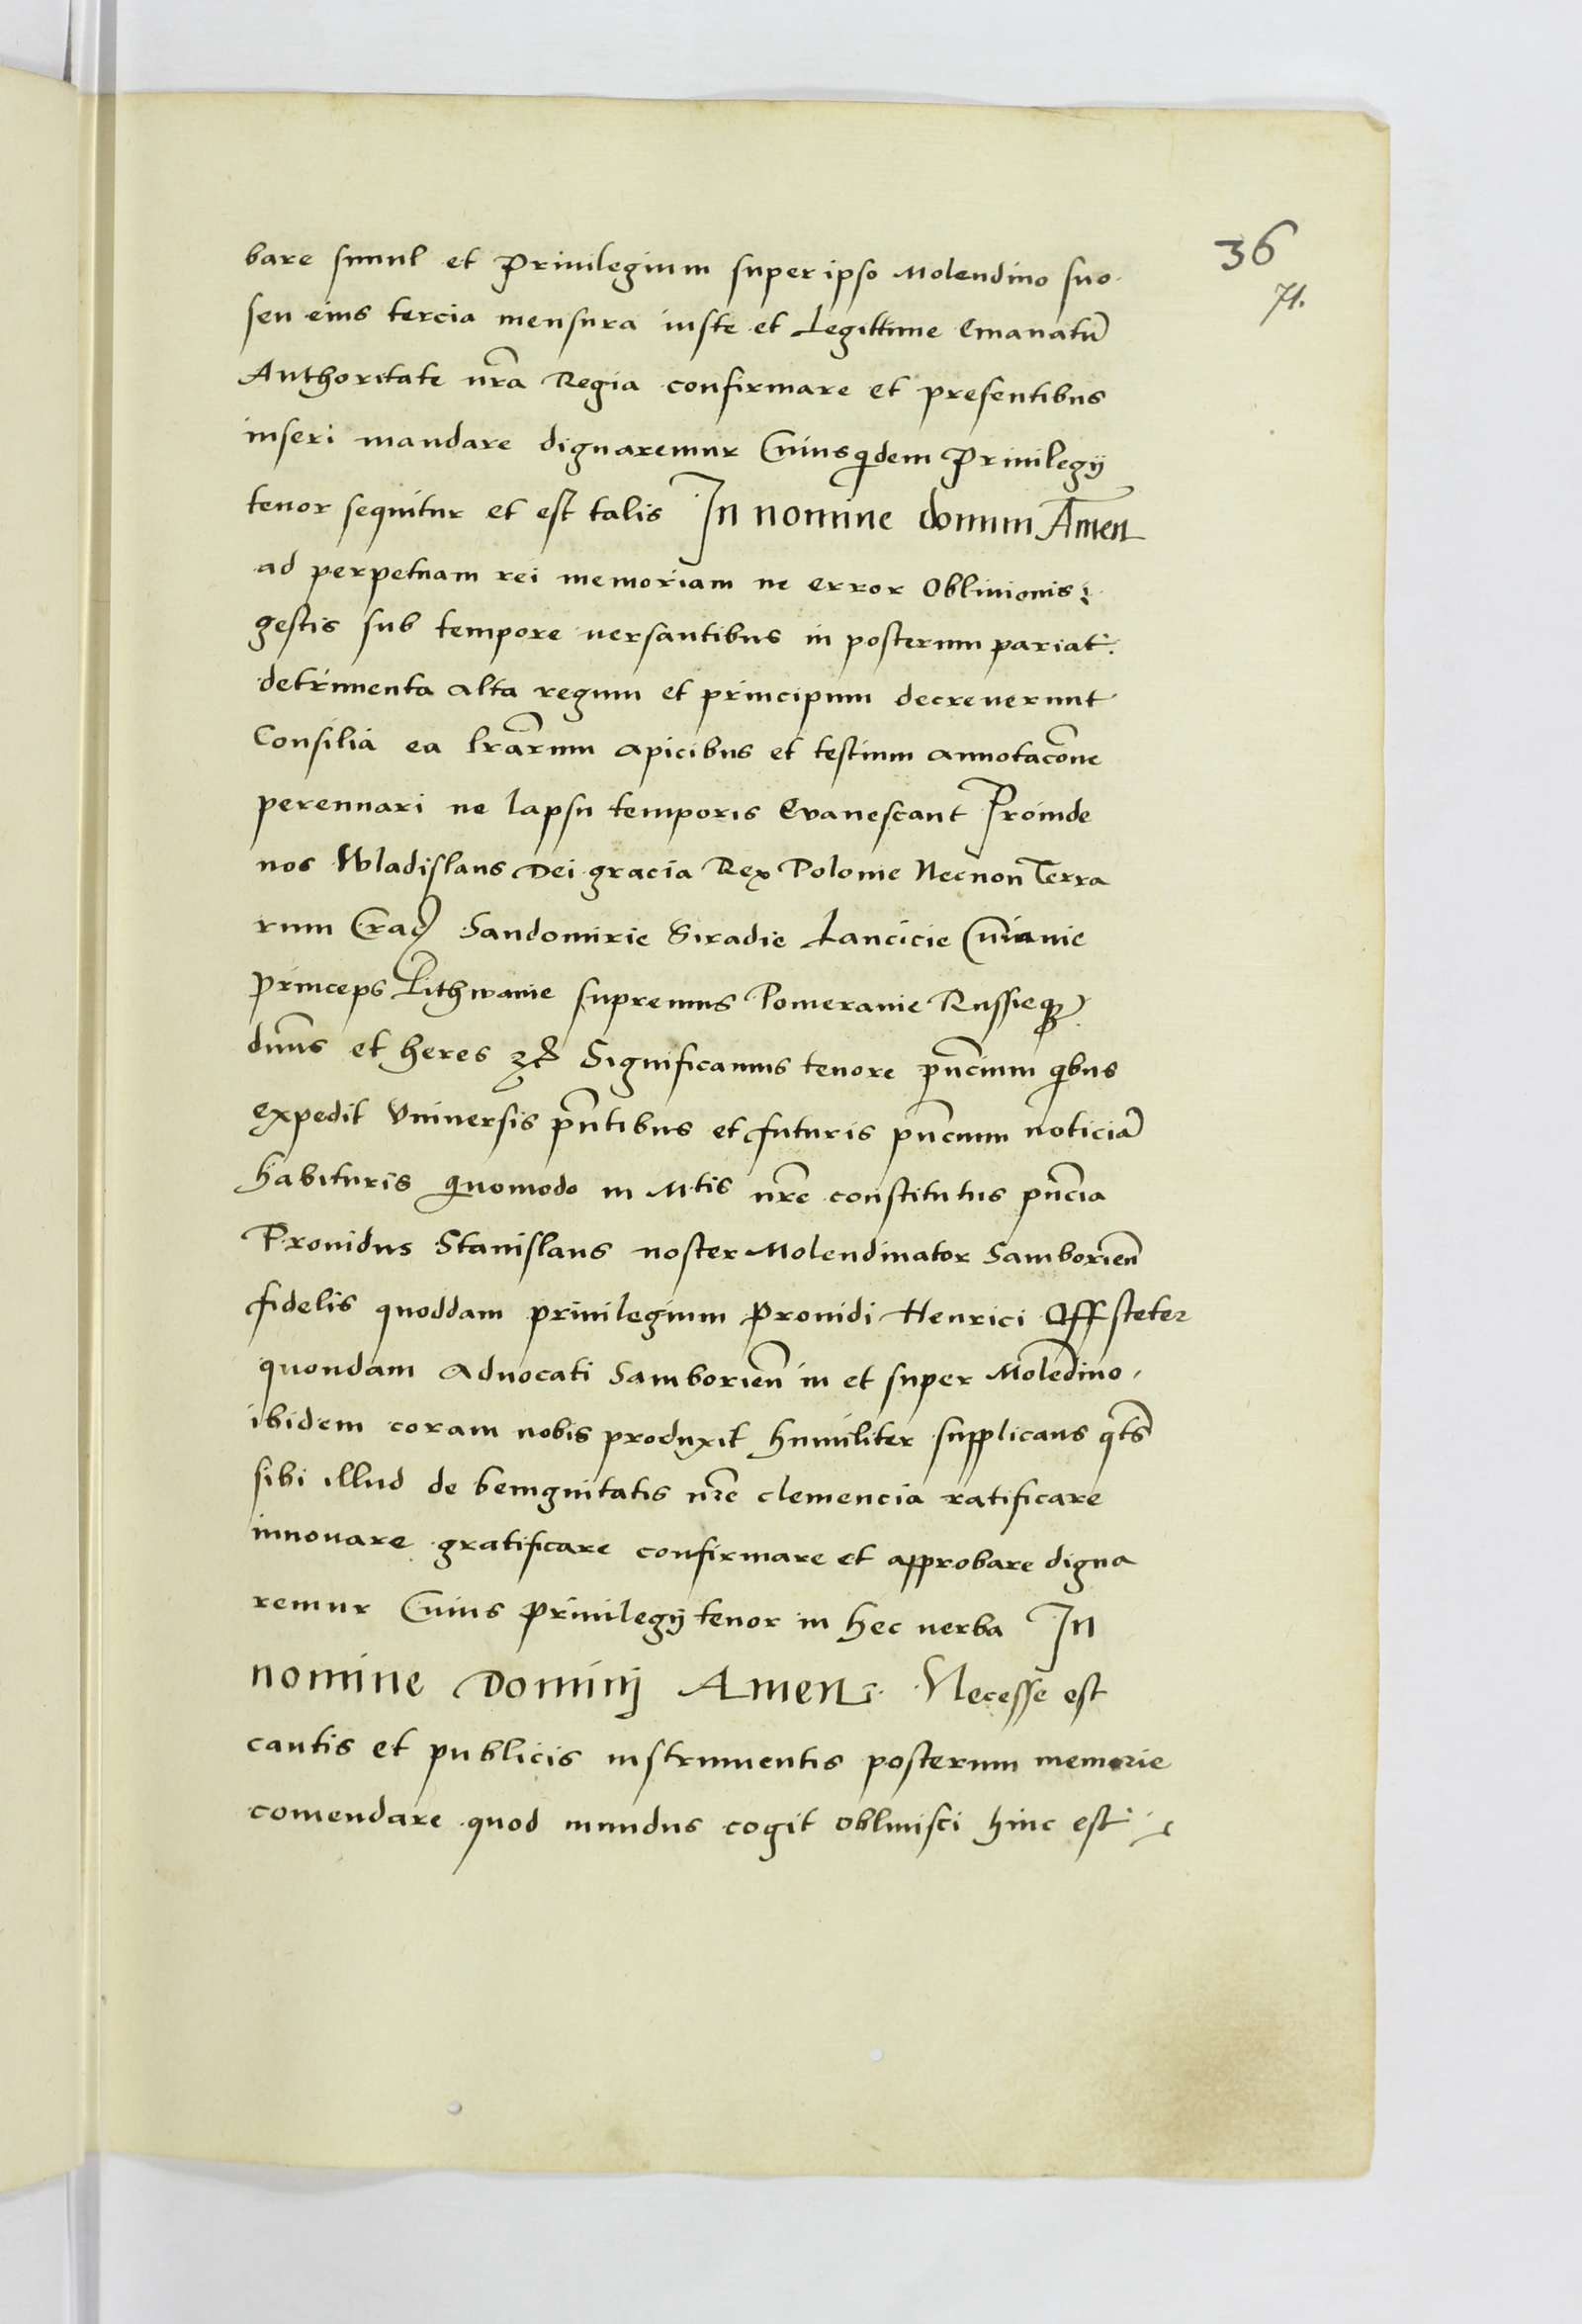 36
71.
bare simul et Priuilegium super ipso Molendino suo
seu eius tercia mensura iuste et Legittime Emanatu̅
Authoritate nr̅a Regia confirmare et presentibus
inseri mandare dignaremur Cuius qͥdem Priuilegij
tenor sequitur et est talis In nomine domini Amen
ad perpetuam rei memoriam ne error Obliuionis
gestis sub tempore uersantibus in posterum pariat
detrimenta alta regum et principum decreuerunt
Consilia ea lr̅arum apicibus et testium annotaco̅ne
perennari ne lapsu temporis Evanescant Proinde
nos Wladislaus Dei gracia Rex Polonie Necnon Terra
rum Crac̅ Sandomirie Siradie Lancicie Cuianie
Princeps Lithwanie supremus Pomeranie Russieqꝫ
dn̅us et heres ꝛc̅ Significamus tenore pn̅cium qͥbus
expedit Vniuersis pn̅tibus et futuris pn̅cium noticia̅
habituris quomodo in Mtis nr̅e constitutus pn̅cia
Prouidus Stanislaus noster Molendinator Samborien̅
fidelis quoddam priuilegium Prouidi Henrici Offsteter
quondam Aduocati Samborien̅ in et super Mole̅dino
ibidem coram nobis produxit humiliter supplicans qt̅s
sibi illud de benignitatis nr̅e clemencia ratificare
innouare gratificare confirmare et approbare digna
remur Cuius Priuilegij tenor in hec uerba In
nomine Dominj Amen. Necesse est
cautis et publicis instrumentis posterum memorie
comendare quod mundus cogit obliuisci hinc est